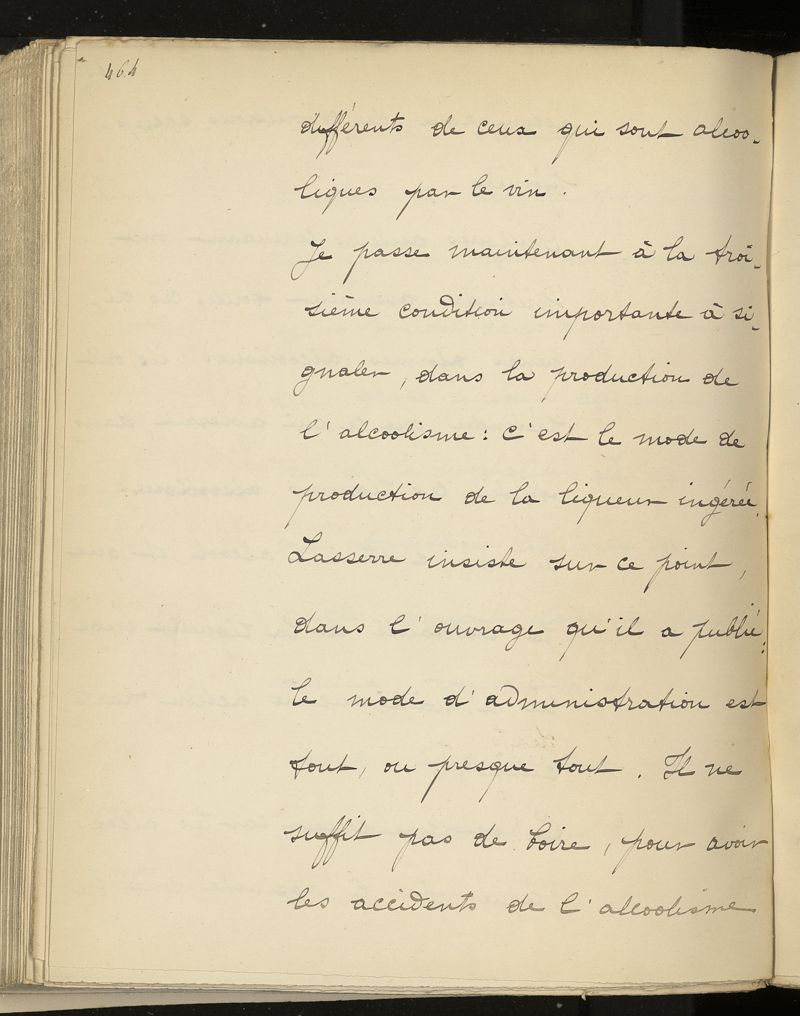 464
différents de ceux qui sont alcoo-
liques par le vin.
Je passe maintenant à la troi-
sième condition importante à si-
gnaler, dans la production de
l'alcoolisme : c'est le mode de
production de la liqueur ingérée.
Lasserre insiste sur ce point,
dans l'ouvrage qu'il a publié :
le mode d'administration est
tout, ou presque tout. Il ne
suffit pas de boire, pour avoir
les accidents de l'alcoolisme